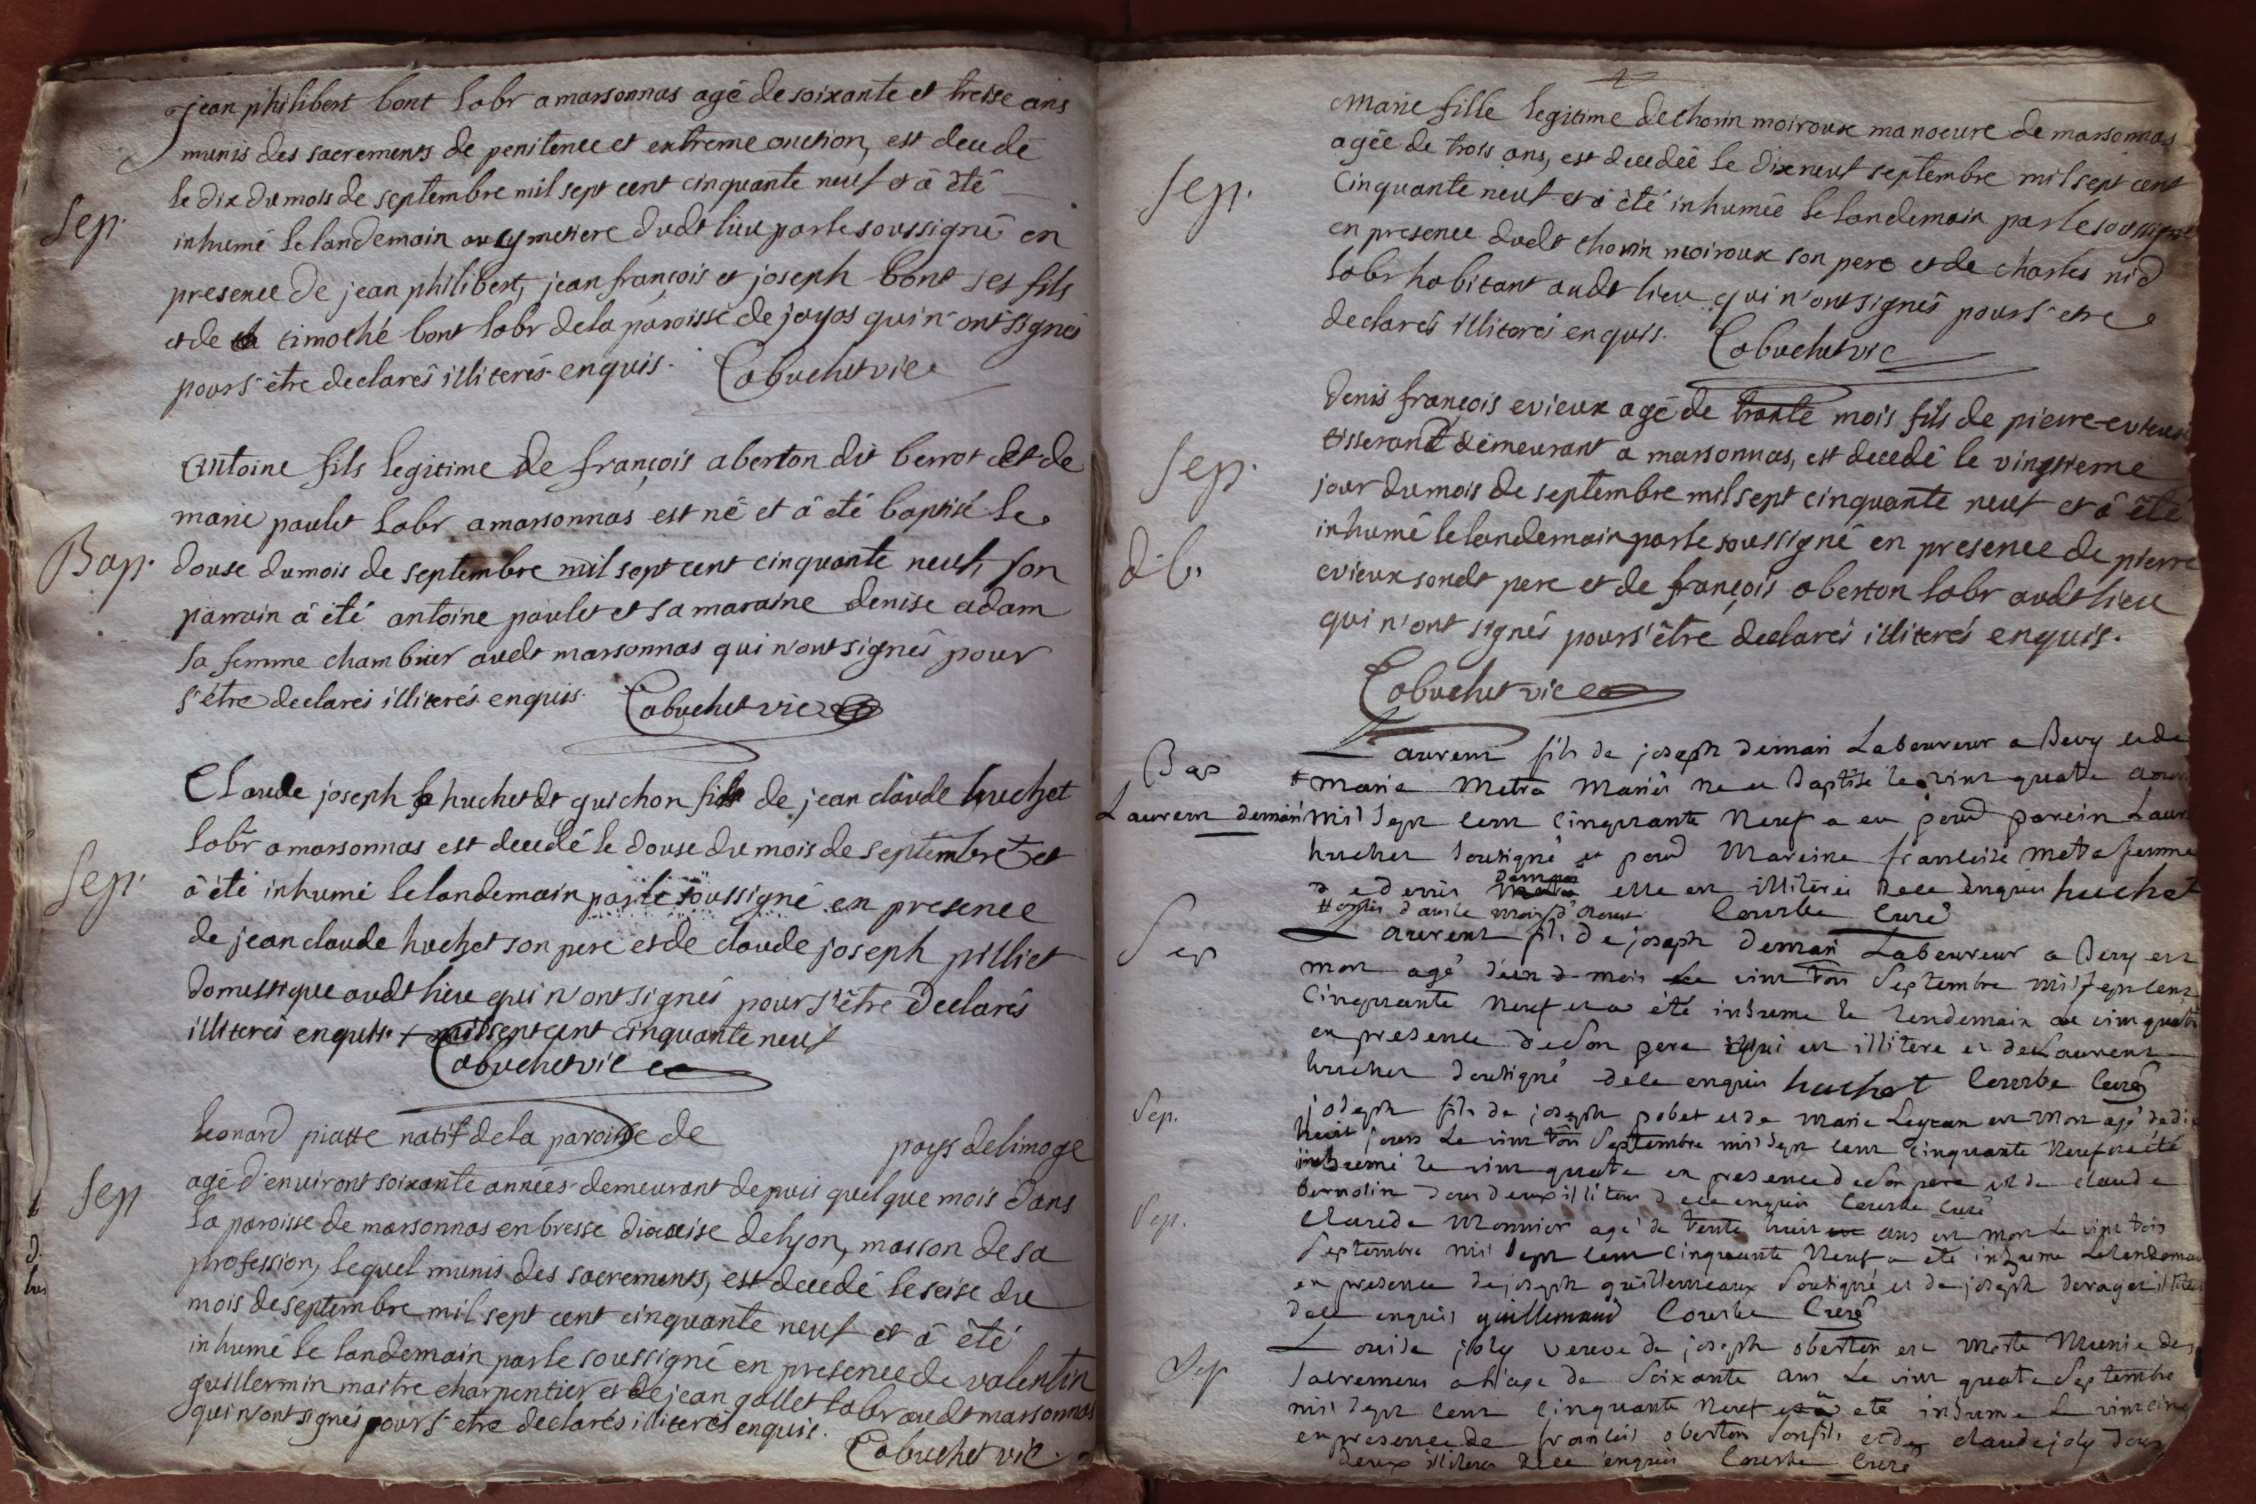 jean philibert bont labr a marsonnas agé de soixante et treise ans
munis des sacrements de penitence et extreme onction, est decedé
Sep. le dix du mois de septembre mil sept cent cinquante neuf et à été
inhumé le landemain au cymetiere dudt lieu par le soussigné en
presence de jean philibert, jean françois et joseph bont ses fils
et de timothé bont labr de la paroisse de jayas qui n'ont signés
pour s'être declarés illiterés enquis. Cabuchet vic
Antoine fils legitime de françois aberton dit berrot et de
marie paulet labr a marsonnas est né et à été baptisé le
Bap. douse du mois de septembre mil sept cent cinquante neuf, son
parrain à été antoine paulet et sa maraine denise adam
sa femme chambrier audt marsonnas qui n'ont signés pour
s'être declarés illiterés enquis. Cabuchet vic
Claude joseph huchet dt guichon fils de jean claude huchet
labr a marsonnas est decedé le douse du mois de septembre + et
Sep. à été inhumé le landemain par le soussigné en presence
de jean claude huchet son pere et de claude joseph pilliet
domestique audt lieu qui n'ont signés pour s'être declarés
illiterés enquis. + mil sept cent cinquante neuf
Cabuchet vic
leonard piatte natif de la paroisse de pays de limoge
Sep agé d'environt soixante années demeurant depuis quelque mois dans
la paroisse de marsonnas en bresse diocaise de lyon, masson de sa
profession, lequel munis des sacrements, est decedé le seise du
mois de septembre mil sept cent cinquante neuf et à été
inhumé le landemain par le soussigné en presence de valentin
guillermin maitre charpentier et de jean gallet labr audt marsonnas
qui n'ont signés pour s'etre declarés illiterés enquis.
Cabuchet vic.
Marie fille legitime de chorin moiroux manoeure de marsonnas
agée de trois ans, est decedée le dix neuf septembre mil sept cent
Sep. Cinquante neuf et à été inhumée le landemain par le soussigné
en presence dudt chorin moiroux son pere et de charles nid
labr habitant audt lieu qui n'ont signés pour s'etre
declarés illiterés enquis. Cabuchet vic
denis françois evieux agé de trante mois fils de pierre evieux
tisserand demeurant a marsonnas, est decedé le vingtieme
Sep. jour du mois de septembre mil sept cinquante neuf et à été
inhumé le landemain par le soussigné en presence de pierre
evieux sondt pere et de françois aberton labr audt lieu
qui n'ont signés pour s'être declarés illiterés enquis.
Cabuchet vic
Laurent fils de joseph deman Laboureur a Bevy et de
Bap marie Metra Mariés ne et baptise le vint quatre
Laurent deman mil sept cent Cinquante Neuf a eu pour parein Laurent
huchet soutigné et pour Mareine francoise metra femme
de denis elle est illiterée dece enquis huchet
Courbe Curé
Laurent fils de joseph deman Laboureur a Bevy est
Sep mort agé d'un mois Le vint trois Septembre mil sept cent
Cinquante Neuf et a été inhume le lendemain vint quatre
en presence de son pere qui est illitere et de Laurent
huchet soutigné dece enquis huchet Courbe Curé
Sep. joseph fils de joseph pobet et de Marie est Mort agé de dix
huit jours Le vint trois Septembre mil sept cent Cinquante Neuf et a été
inhumé le vint quatre en presence de son pere et de claude
bernolin tous deux illiteres dece enquis Courbe Curé
Sep. Claude Monnier agé de trente huit ans est mort Le vint trois
Septembre mil sept cent Cinquante Neuf a été inhume Lelendemain
en presence de joseph guillemeaux soutigné et de joseph
dece enquis guillemaud Courbe Curé
Louise joly veuve de joseph oberton est Morte Munie des
Sep sacremens a l'age de Soixante ans Le vint quatre Septembre
mil sept cent Cinquante Neuf et a été inhume Le vint cinq
en presence de francois oberton son fils et de claude joly tous
deux illiteres dece enquis Courbe Curé